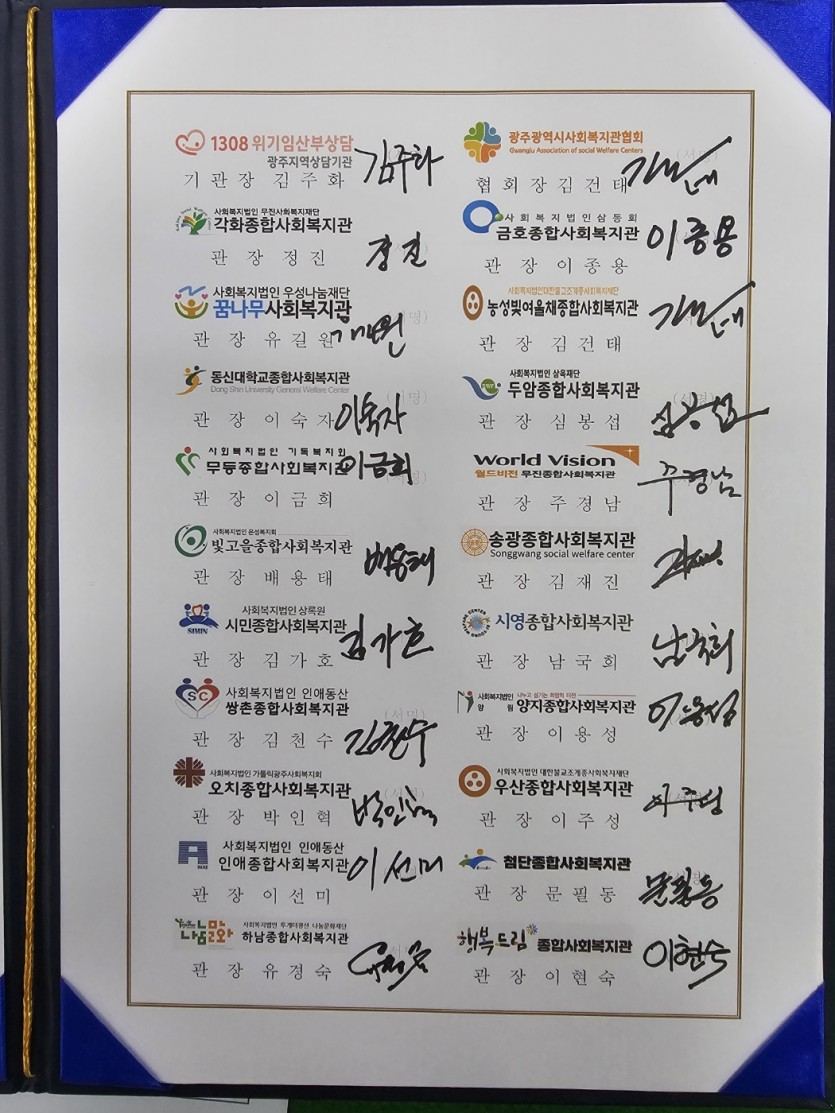 1308 위기임산부상담
광주지역상담기관
기 관 장 김 주 화 김주화
사회복지법인 무진사회복지재단
각화종합사회복지관
관 장 정 진 정진
사회복지법인 우성나눔재단
꿈나무사회복지관
관 장 유 길 원
동신대학교종합사회복지관
Dong Shin University General Welfare Center
관 장 이 숙 자 이숙자
사회복지법인 기독복지회
무등종합사회복지관 이금희
관 장 이 금 희
사회복지법인 은성복지회
빛고을종합사회복지관
관 장 배 용 태 배용태
사회복지법인 상록원
SIMIN 시민종합사회복지관
관 장 김 가 호 김가호
사회복지법인 인애동산
SC 쌍촌종합사회복지관
관 장 김 천 수 김천수
사회복지법인 가톨릭광주사회복지회
오치종합사회복지관
관 장 박 인 혁 박인혁
사회복지법인 인애동산
인애종합사회복지관 이선미
관 장 이 선 미
나눔문화재단
하남종합사회복지관
관 장 유 정 숙
광주광역시사회복지관협회
Gwangju Association of social Welfare Centers
(서명)
협 회 장 김 건 태
사 회 복 지 법 인 삼 동 회
금호종합사회복지관 이종용
관 장 이 종 용
사회복지법인대한불교조계종사회복지재단
농성빛여울채종합사회복지관
관 장 김 건 태
사회복지법인 삼육재단
두암종합사회복지관
(서명)
관 장 심 봉 섭 심봉섭
World Vision
월드비전 무진종합사회복지관
관 장 주 경 남 주경남
송광종합사회복지관
Songgwang social welfare center
관 장 김 재 진
시영종합사회복지관
관 장 남 국 희 남국희
사회복지법인 양림 나누고 섬기는 희망의 터전
양지종합사회복지관
관 장 이 용 성 이용성
사회복지법인 대한불교조계종사회복지재단
우산종합사회복지관
관 장 이 주 성 이주성
첨단종합사회복지관
관 장 문 필 동 문필동
행복드림 종합사회복지관
관 장 이 현 숙 이현숙